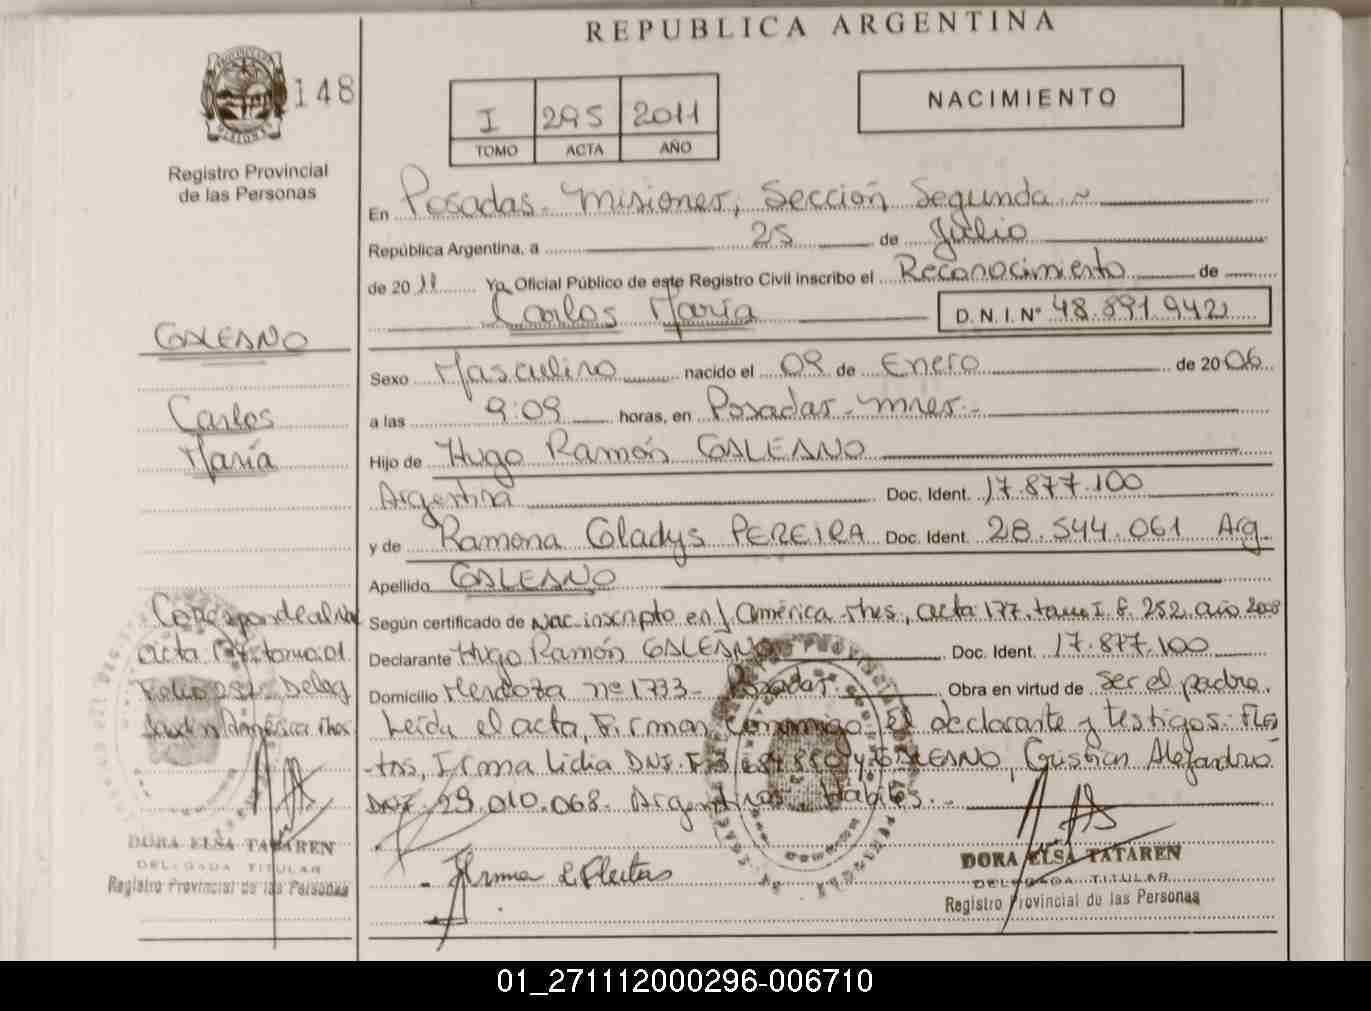 REPUBLICA ARGENTINA
148
Registro Provincial
de las Personas
I 295 2011
TOMO ACTA AÑO
NACIMIENTO
En Posadas - Misiones, Sección Segunda
República Argentina, a 25 de Julio
de 2011 Yo Oficial Público de este Registro Civil inscribo el Reconocimiento de
Carlos María D.N.I. Nº 48.891.942
GALEANO
Carlos
María
Sexo Masculino nacido el 09 de Enero de 2006
a las 9:09 horas, en Posadas - Mnes -
Hijo de Hugo Ramón GALEANO
Argentina Doc. Ident. 17.877.100
y de Ramona Gladys PEREIRA Doc. Ident. 28.544.061 Arg.
Apellido GALEANO
Corresponde al
acta 177 tomo 01
Folio 252 Deleg
Jardín América Mnes
Según certificado de Nac. inscripto en J. América - Mnes., acta 177, tomo I. F. 252 año 2008
Declarante Hugo Ramón GALEANO Doc. Ident. 17.877.100
Domicilio Mendoza nº 1733 - Posadas - Obra en virtud de Ser el padre.
Leída el acta, Firman conmigo el declarante y testigos: Flei
-tas, Irma Lidia DNI. y GALEANO, Cristian Alejandro
DNI 29.010.068. Argentinos. Hábiles. -
DORA ELSA TATAREN
DELEGADA TITULAR
Registro Provincial de las Personas
Irma L Fleitas
DORA ELSA TATAREN
DELEGADA TITULAR
Registro Provincial de las Personas
01_271112000296-006710